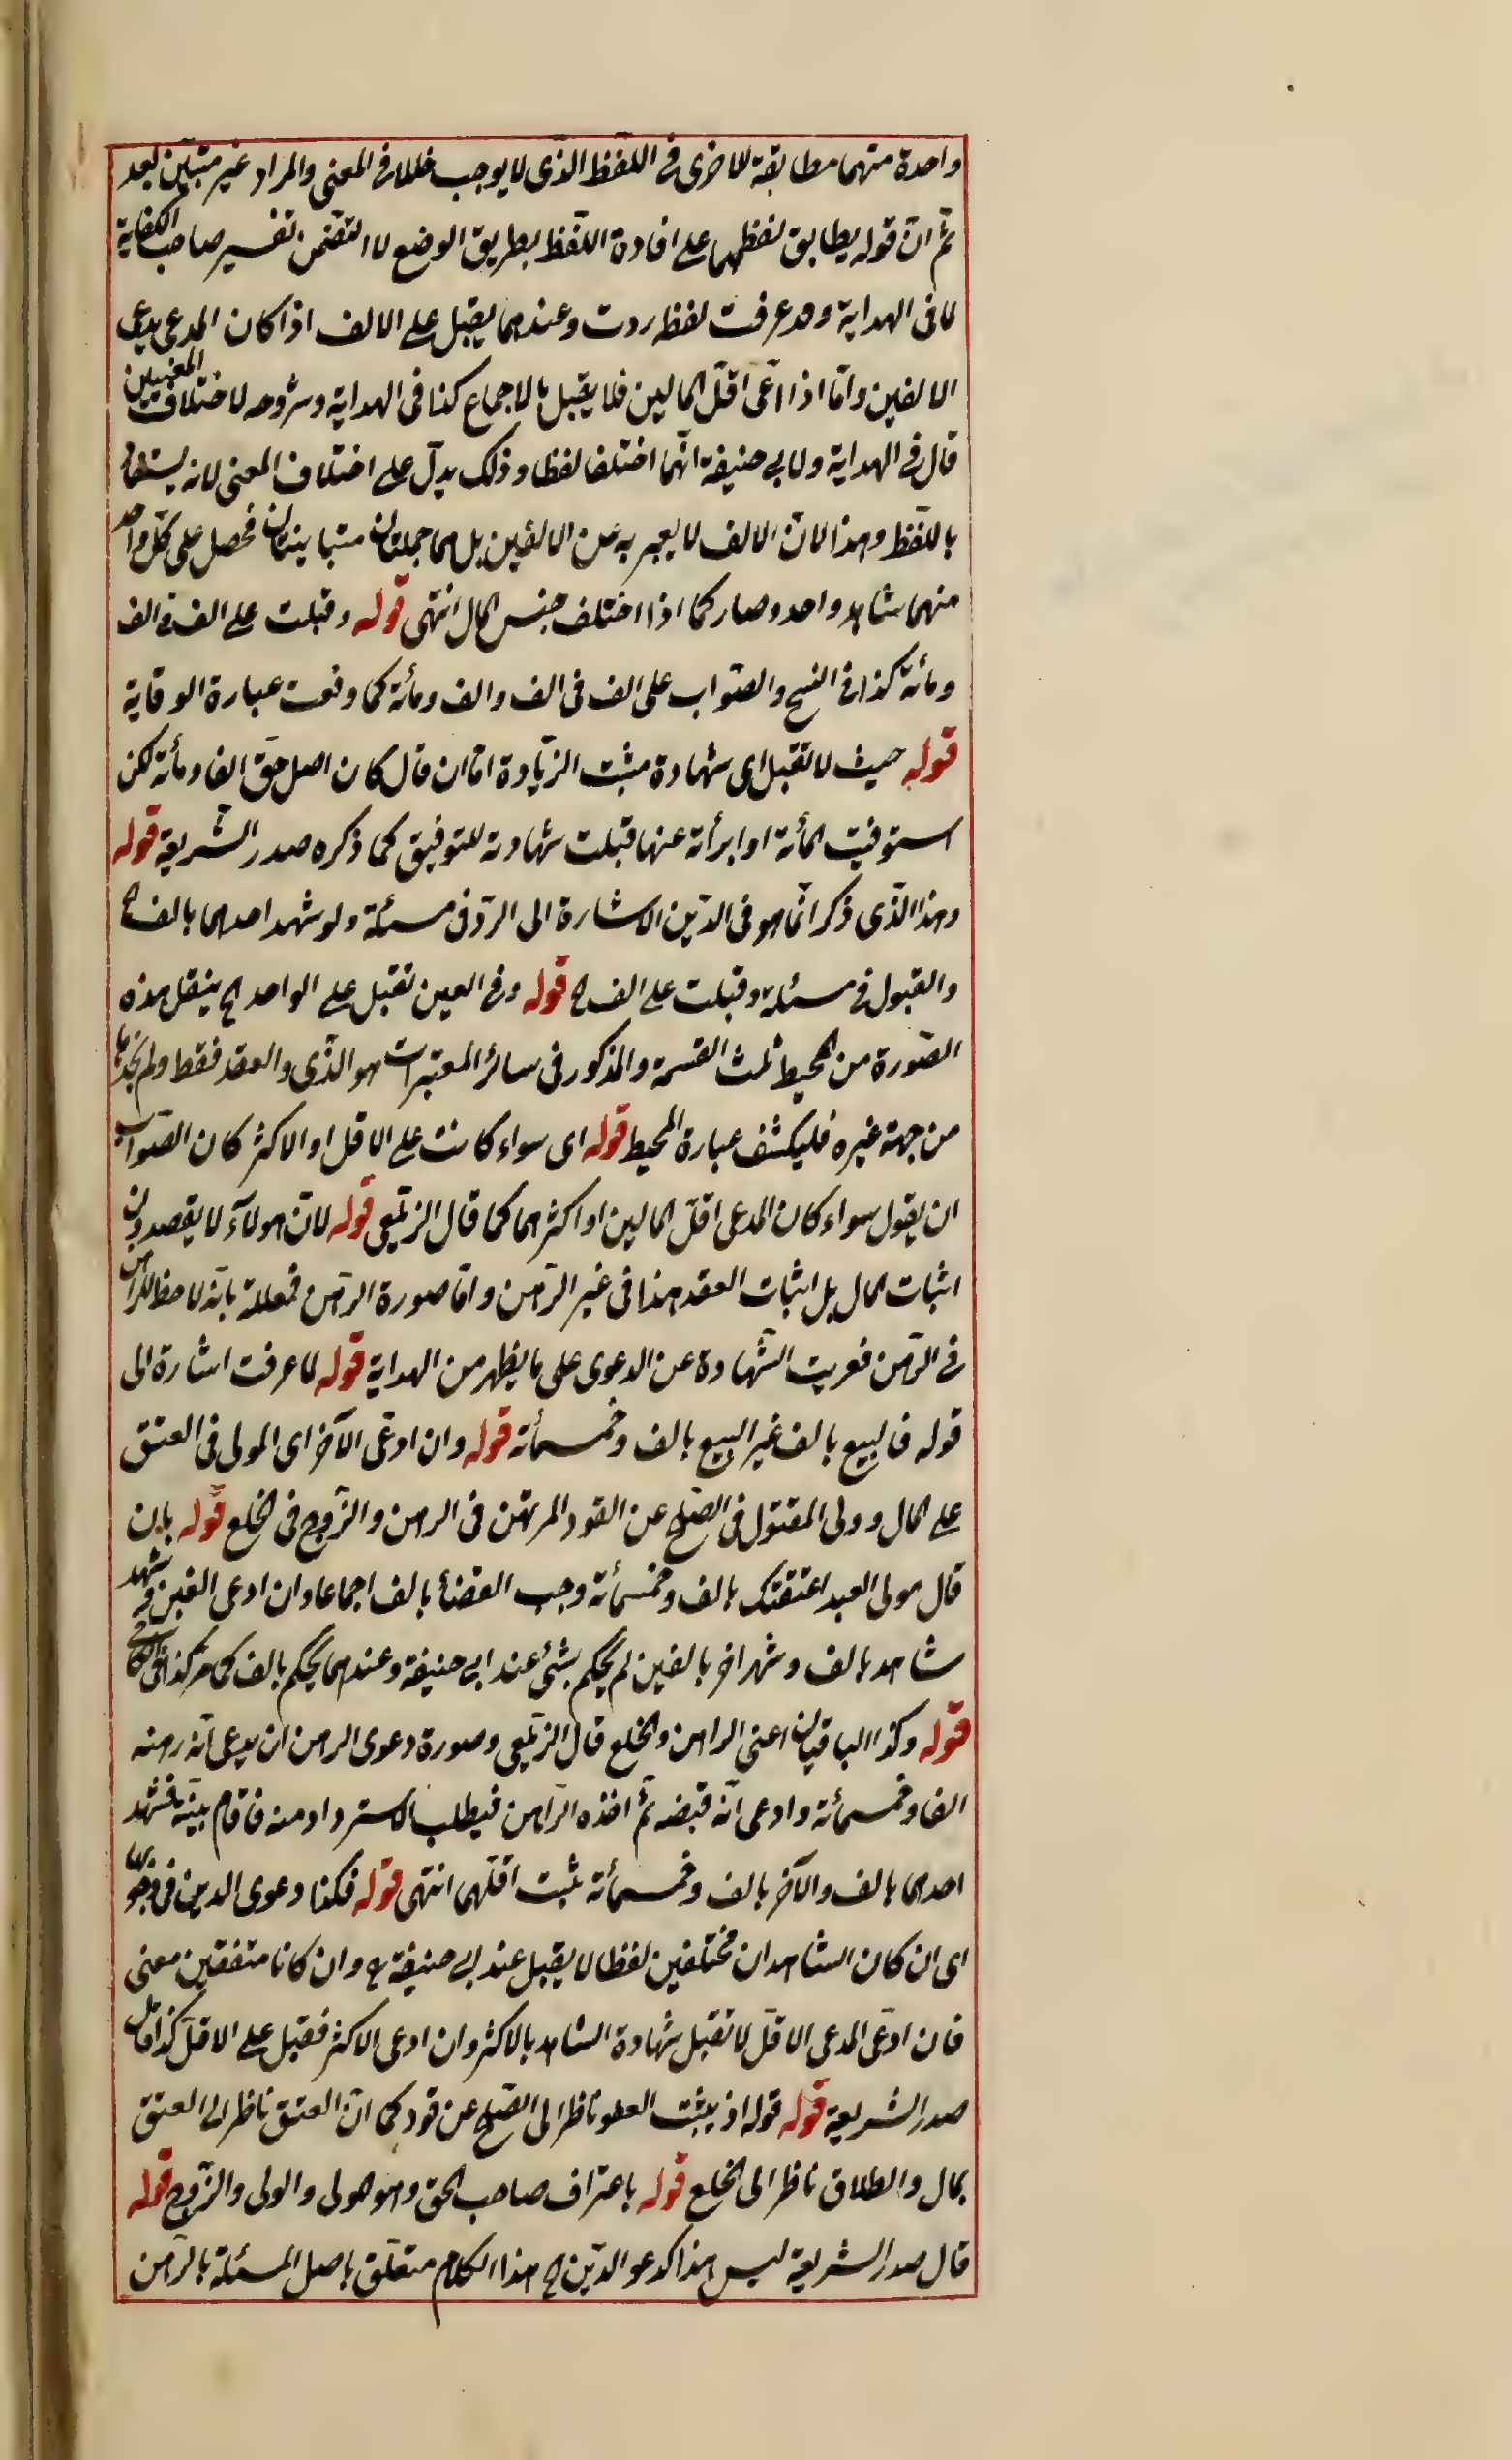 واحدة منهما مطابقة للاخرى فى اللفظ الذى لا يوجب خللا فى المعنى والمراد غير متبيّن بعد
ثمّ انّ قوله يطابق لفظهما على افادة اللّفظ بطريق الوضع لا التضمّن تفسير صاحب الكفاية
لما فى الهداية وقد عرفت لفظه ردت وعندهما يقبل على الالف اذا كان المدعى يدعى
الالفين وامّا اذا ادّعى اقلّ المالين فلا يقبل بالاجماع كذا فى الهداية وشروحه لاختلاف المعنيين
قال فى الهداية ولابى حنيفة انّهما اختلفا لفظا وذلك يدلّ على اختلاف المعنى لانه يستفاد
باللّفظ وهذا لانّ الالف لا يعبر به عن الالفين بل هما جملتان متباينتان فحصل على كلّ واحد
منهما شاهد واحد وصار كما اذا اختلف جنس المال انتهى قوله وقبلت على الف فى الف
ومأئة كذا فى النسخ والصّواب على الف فى الف والف ومأئة كما وقعت عبارة الوقاية
قوله حيث لا تقبل اى شهادة مثبت الزّيادة امّا ان قال كان اصل حقّى الفا ومأئة لكن
استوفيت المأئة او ابرأته عنها قبلت شهادته للتوفيق كما ذكره صدر الشّريعة قوله
وهذا الذّى ذكر انّما هو فى الدّين الاشارة الى الردّ فى مسئلة ولو شهد احدهما بالف الخ
والقبول فى مسئلة وقبلت على الف الخ قوله وفى العين تقبل على الواحد الخ ينقل هذه
الصّورة من المحيط ثلث القسمة والمذكور فى سائر المعتبرات هو الدّين والعقد فقط ولم نجدها
من جهة غيره فليكشف عبارة المحيط قوله اى سواء كانت على الاقل او الاكثر كان الصّواب
ان يقول سواء كان المدعى اقلّ المالين او اكثرهما كما قال الزيلعى قوله لانّ هولاء لا يقصدون
اثبات المال بل اثبات العقد هذا فى غير الرّهن وامّا صورة الرّهن فمعللة بانّه لا حظ للراهن
فى الرّهن فعريت الشّهادة عن الدعوى على ما يظهر من الهداية قوله لما عرفت اشارة الى
قوله فالبيع بالف غير البيع بالف وخمسمأئة قوله وان ادعّى الآخر اى المولى فى العتق
على المال وولى المقتول فى الصّلح عن القود المرتهن فى الرهن والزّوج فى الخلع قوله بان
قال مولى العبد اعتقتك بالف وخمسمأئة وجب القضاء بالف اجماعا وان ادعى الفين فشهد
شاهد بالف وشهد اخر بالفين لم يحكم بشئ عند ابى حنيفة وعندهما يحكم بالف كما مرّ كذا فى الكافى
قوله وكذا الباقيان اعنى الراهن والخلع قال الزيلعى وصورة دعوى الرهن ان يدعى انّه رهنه
الفا وخمسمأئة وادعى انّه قبضه ثمّ اخذه الرّاهن فيطلب الاسترداد منه فاقام بيّنة فشهد
احدهما بالف والآخر بالف وخمسمأئة يثبت اقلّهما انتهى قوله فكذا دعوى الدين فى وجوهها
اى ان كان الشاهدان مختلفين لفظا لا يقبل عند ابى حنيفة رح وان كانا متفقين معنى
فان ادّعى المدعى الاقلّ لا تقبل شهادة الشاهد بالاكثر وان ادعى الاكثر فقبل على الاقلّ كذا قال
صدر الشريعة قوله قوله اذ يثبت العفو ناظر الى الصّلح عن قود كما انّ العتق ناظر الى العتق
بمال والطلاق ناظر الى الخلع قوله باعتراف صاحب الحق وهو المولى والولى والزّوج قوله
قال صدر الشريعة ليس هذا كدعو الدّين الخ هذا الكلام متعلّق باصل المسئلة بالرّهن